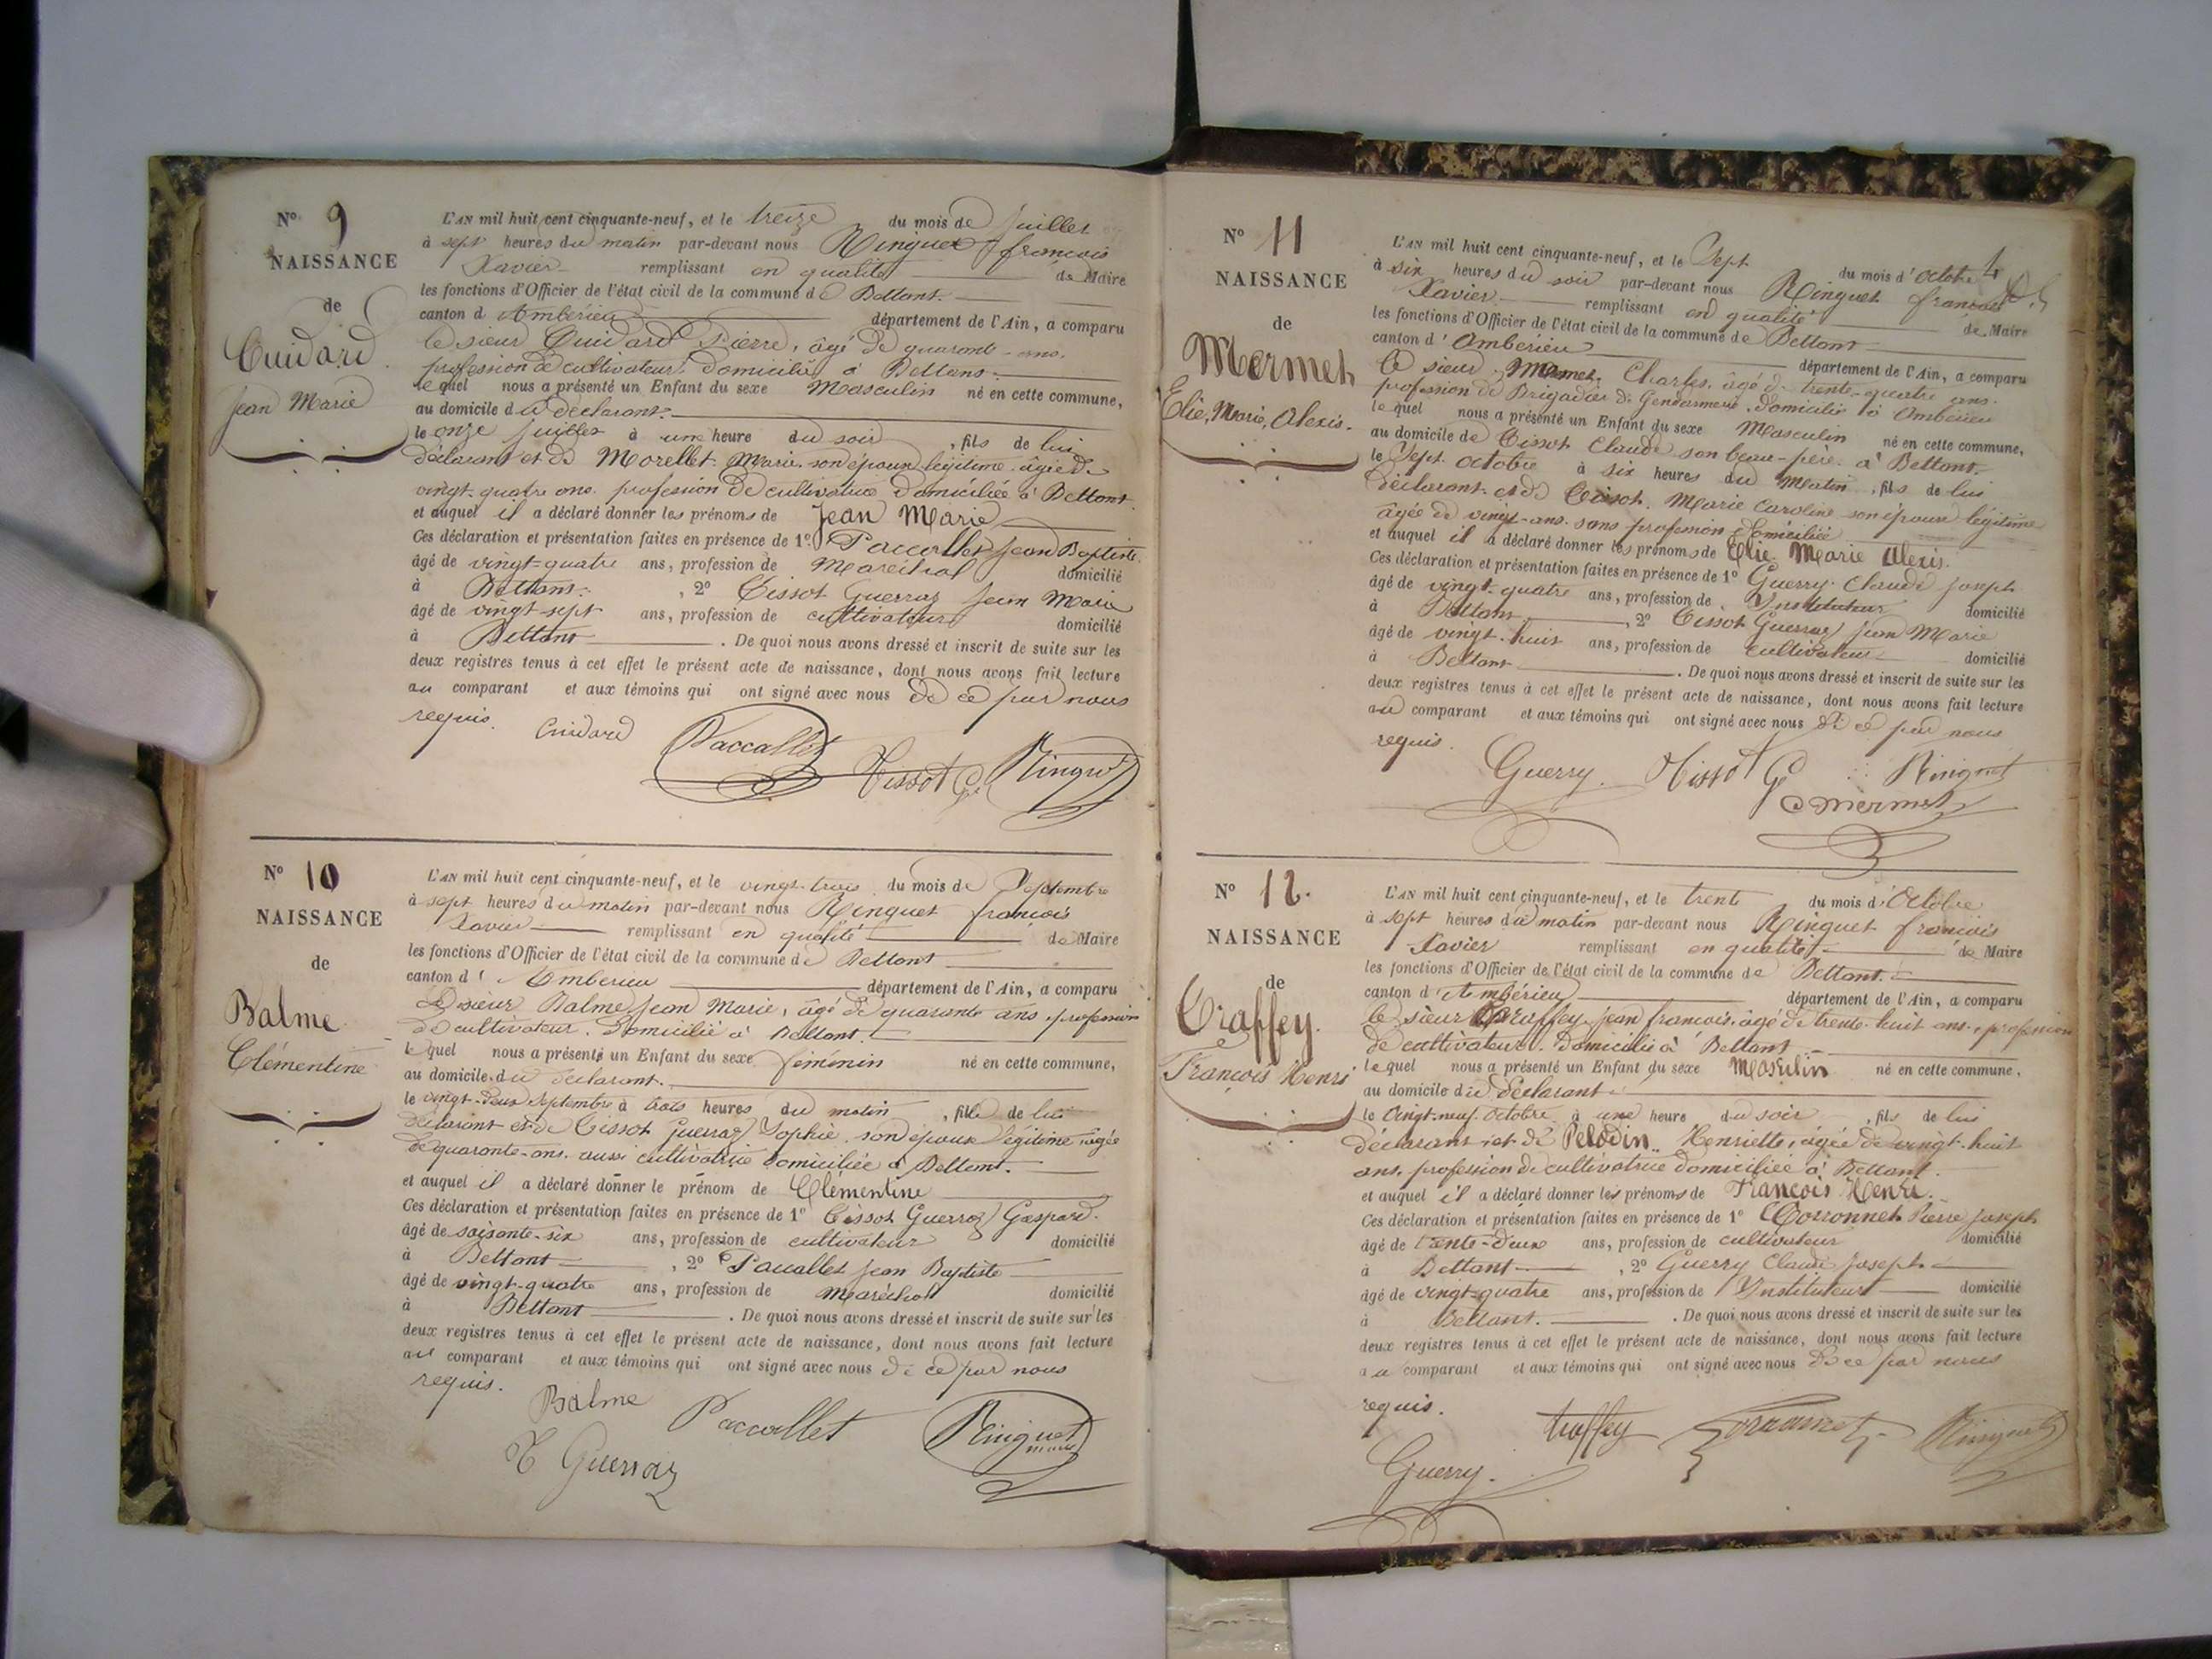 N° 9
NAISSANCE
de
Cuidard
Jean Marie
L'AN mil huit cent cinquante-neuf, et le treize du mois de Juillet
à sept heures du matin par-devant nous Ringuet françois
Xavier remplissant en qualité de Maire
les fonctions d'Officier de l'état civil de la commune de Bettant.
canton d'Ambérieu département de l'Ain, a comparu
le sieur Cuidard Pierre, âgé de quarante-ans.
profession de cultivateur. domicilié à Bettans.
lequel nous a présenté un Enfant du sexe Masculin né en cette commune,
au domicile du déclarant.
le onze Juillet à une heure du soir, fils de lui
déclarant et de Morellet Marie son épouse légitime âgée de
vingt-quatre ans. profession de cultivatrice domiciliée à Bettant.
et auquel il a déclaré donner les prénoms de Jean Marie
Ces déclaration et présentation faites en présence de 1° Paccallet Jean Baptiste.
âgé de vingt-quatre ans, profession de Maréchal domicilié
à Bettans, 2° Tissot Guerraz Jean Marie
âgé de vingt-sept ans, profession de cultivateur domicilié
à Bettant. De quoi nous avons dressé et inscrit de suite sur les
deux registres tenus à cet effet le présent acte de naissance, dont nous avons fait lecture
au comparant et aux témoins qui ont signé avec nous de ce par nous
requis. Cuidard Paccallet Tissot G Ringuet
N° 10
NAISSANCE
de
Balme
Clémentine
L'AN mil huit cent cinquante-neuf, et le vingt-trois du mois de Septembre
à sept heures du matin par-devant nous Ringuet françois
Xavier remplissant en qualité de Maire
les fonctions d'Officier de l'état civil de la commune de Bettant
canton d'Amberieu département de l'Ain, a comparu
Le sieur Balme Jean Marie, âgé de quarante ans, profession
de cultivateur. domicilié à Bettant.
lequel nous a présenté un Enfant du sexe féminin né en cette commune,
au domicile du déclarant.
le vingt-deux Septembre à trois heures du matin, fille de lui
déclarant et de Tissot Guerraz Sophie. son épouse légitime âgée
de quarante-ans. aussi cultivatrice domiciliée à Bettant.
et auquel il a déclaré donner le prénom de Clémentine
Ces déclaration et présentation faites en présence de 1° Tissot Guerraz Gaspard.
âgé de soisante-six ans, profession de cultivateur domicilié
à Bettant, 2° Paccallet Jean Baptiste
âgé de vingt-quatre ans, profession de maréchal domicilié
à Bettant. De quoi nous avons dressé et inscrit de suite sur les
deux registres tenus à cet effet le présent acte de naissance, dont nous avons fait lecture
au comparant et aux témoins qui ont signé avec nous de ce par nous
requis. Balme Paccallet Ringuet
T Guerraz maire
N° 11
NAISSANCE
de
Mermet
Elie, Marie, Alexis.
4
L'AN mil huit cent cinquante-neuf, et le Sept du mois d'Octobre
à six heures du soir par-devant nous Ringuet françois
Xavier remplissant en qualité de Maire
les fonctions d'Officier de l'état civil de la commune de Bettant
canton d'Amberieu département de l'Ain, a comparu
le sieur Mermet Charles. âgé de trente-quatre ans.
profession de Brigadier de Gendarmerie. domicilié à Ambérieu
lequel nous a présenté un Enfant du sexe Masculin né en cette commune,
au domicile de Tissot Claude son beau-père. à Bettant.
le Sept octobre à six heures du Matin, fils de lui
déclarant et de Tissot. Marie Caroline son épouse légitime
âgée de vingt-ans. sans profession domiciliée
et auquel il a déclaré donner les prénoms de Elie Marie Alexis.
Ces déclaration et présentation faites en présence de 1° Guerry Claude Joseph
âgé de vingt-quatre ans, profession de Instituteur domicilié
à Bettant, 2° Tissot Guerraz Jean Marie
âgé de vingt-huit ans, profession de cultivateur domicilié
à Bettant. De quoi nous avons dressé et inscrit de suite sur les
deux registres tenus à cet effet le présent acte de naissance, dont nous avons fait lecture
au comparant et aux témoins qui ont signé avec nous de ce par nous
requis. Guerry. Tissot G Ringuet
Mermet
N° 12.
NAISSANCE
de
Traffey.
François Henri
L'AN mil huit cent cinquante-neuf, et le trente du mois d'Octobre
à sept heures du matin par-devant nous Ringuet françois
Xavier remplissant en qualité de Maire
les fonctions d'Officier de l'état civil de la commune de Bettant.
canton d'Ambérieu département de l'Ain, a comparu
le sieur Traffey Jean françois. âgé de trente-huit ans, profession
de cultivateur. domicilié à Bettant
lequel nous a présenté un Enfant du sexe Masculin né en cette commune,
au domicile du déclarant
le vingt-neuf Octobre à une heure du soir, fils de lui
déclarant et de Pelodin Henriette, âgée de vingt-huit
ans, profession de cultivatrice domiciliée à Bettant.
et auquel il a déclaré donner les prénoms de François Henri.
Ces déclaration et présentation faites en présence de 1° Corronnet Pierre Joseph
âgé de trente-deux ans, profession de cultivateur domicilié
à Bettant, 2° Guerry Claude Joseph
âgé de vingt-quatre ans, profession de Instituteur domicilié
à Bettant. De quoi nous avons dressé et inscrit de suite sur les
deux registres tenus à cet effet le présent acte de naissance, dont nous avons fait lecture
au comparant et aux témoins qui ont signé avec nous de ce par nous
requis. traffey Corronnet Ringuet
Guerry.